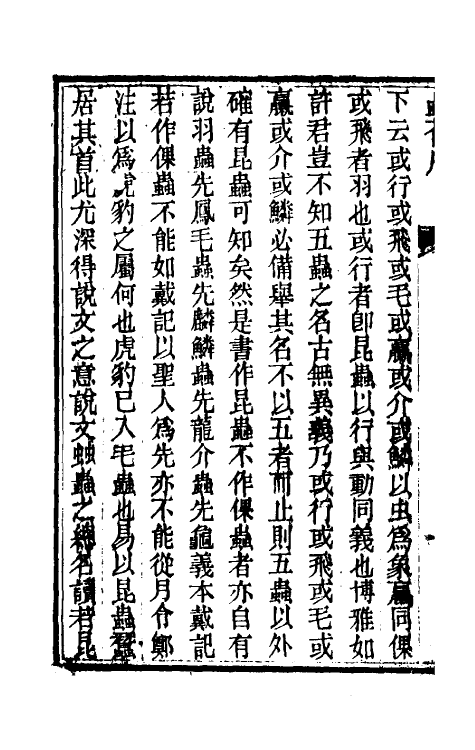 下云或行或飛或毛或蠃或介或鱗以虫爲象蠃同倮
或飛者羽也或行者卽昆蟲以行與動同義也博雅如
許君豈不知五蟲之名古無異義乃或行或飛或毛或
蠃或介或鱗必備舉其名不以五者而止則五蟲以外
確有昆蟲可知矣然是書作昆蟲不作倮蟲者亦自有
說羽蟲先鳳毛蟲先麟鱗蟲先龍介蟲先龜義本戴記
若作倮蟲不能如戴記以聖人爲先亦不能從月令鄭
注以爲虎豹之屬何也虎豹已入毛蟲也易以昆蟲蠶
居其首此尤深得說文之意說文䖵蟲之總名讀若昆